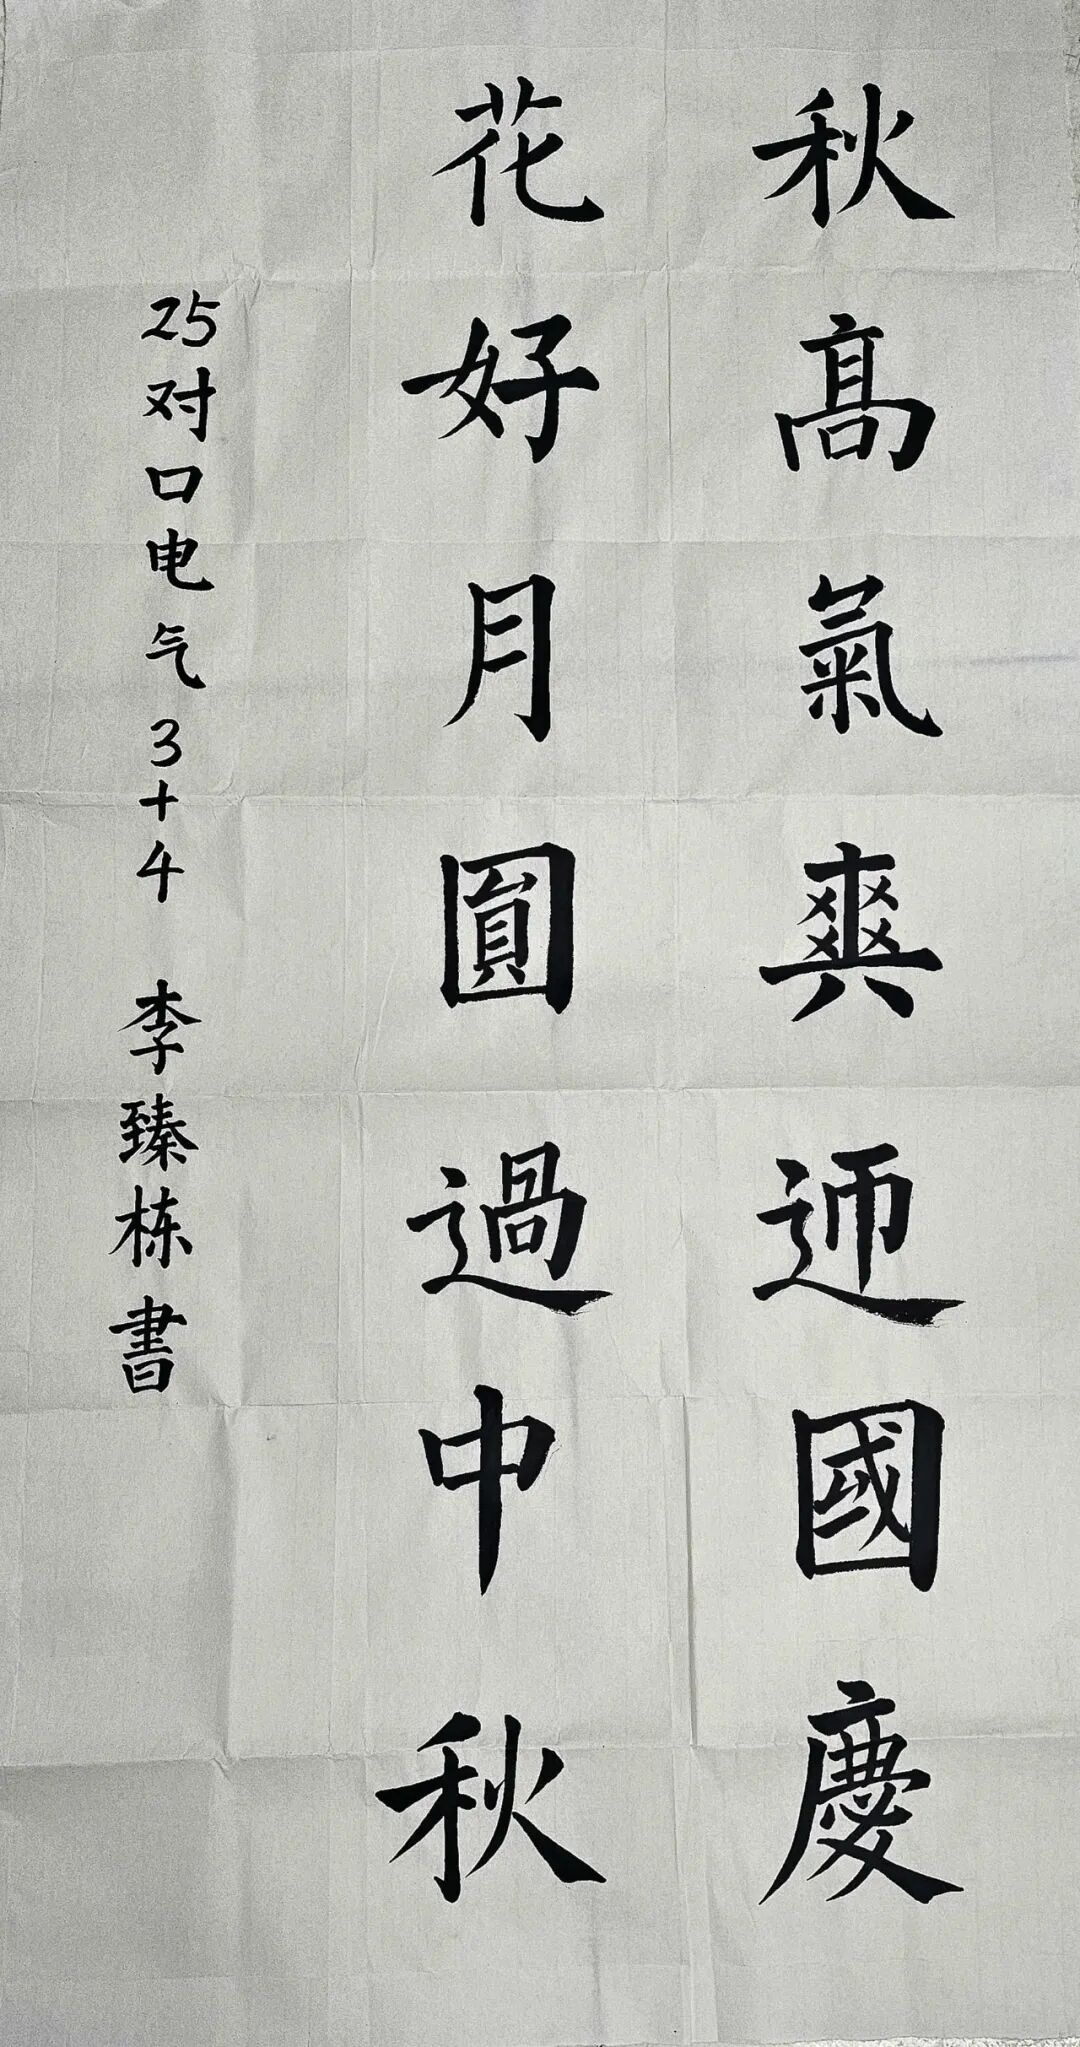 秋高氣爽迊國慶
花好月圓過中秋
25对口电气3+4 李臻栋書